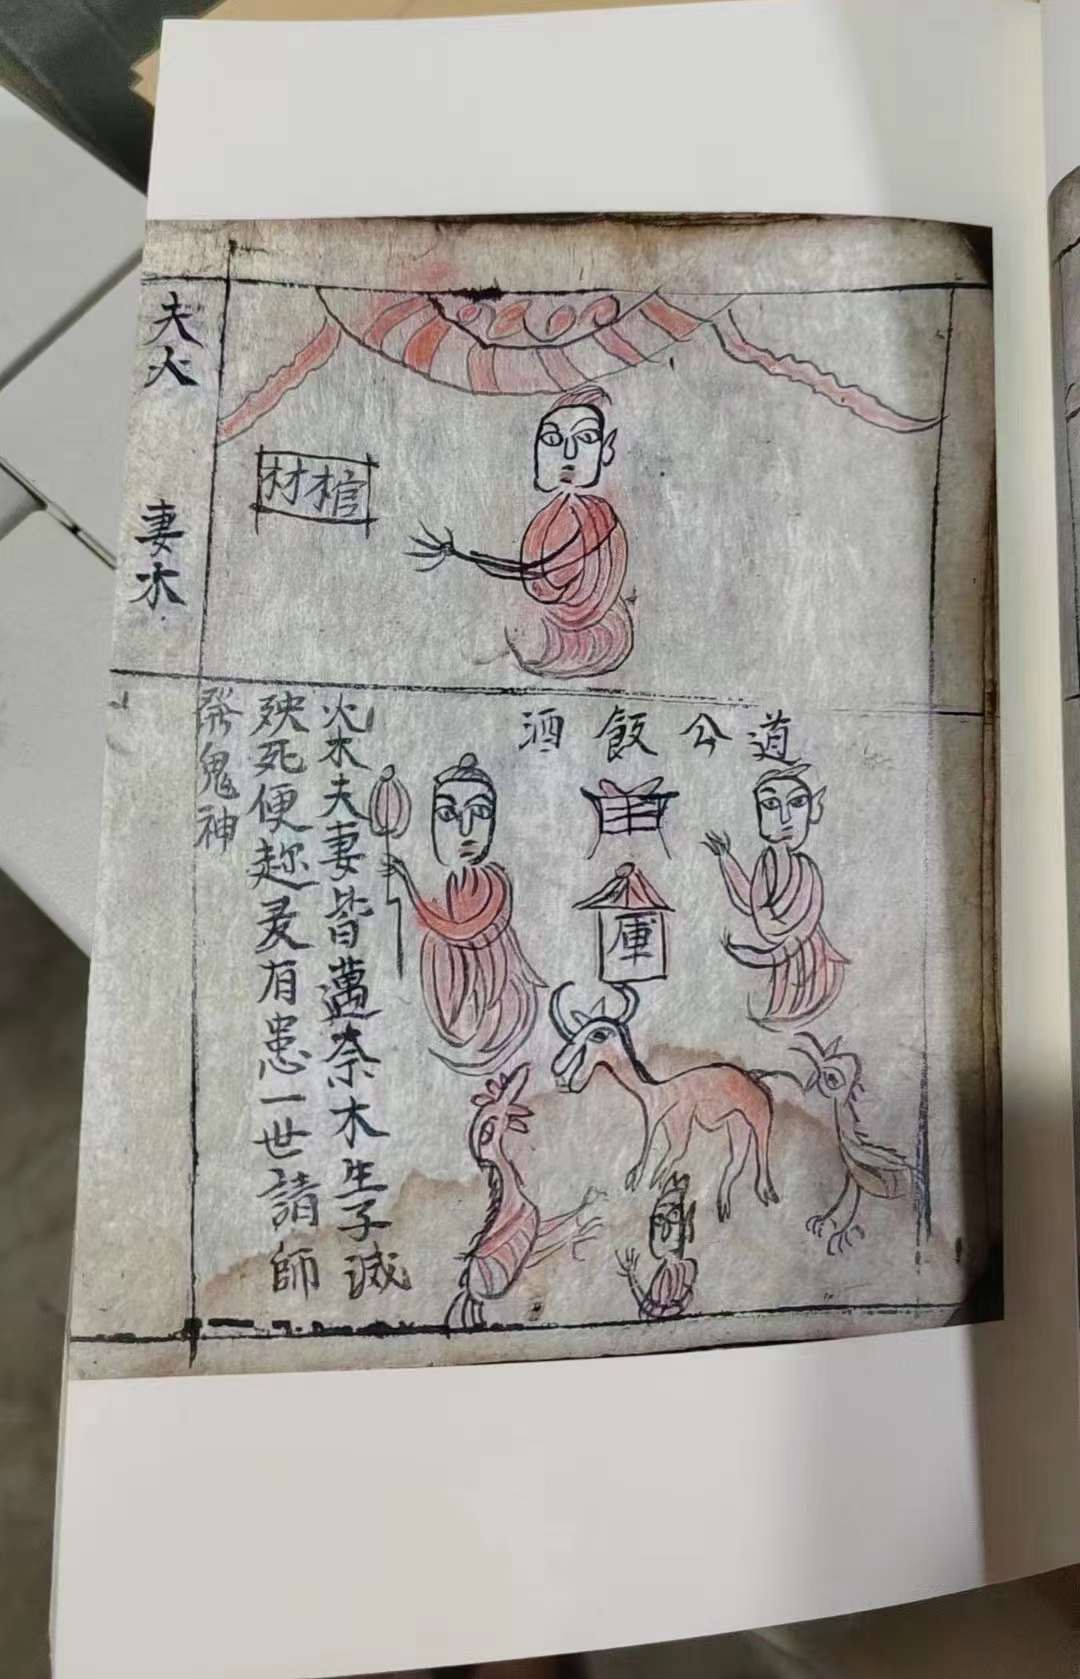 夫火
妻木
棺材
道公飯酒
庫
火木夫妻皆奈木生子滅
殃死便有患一世請師
祭鬼神